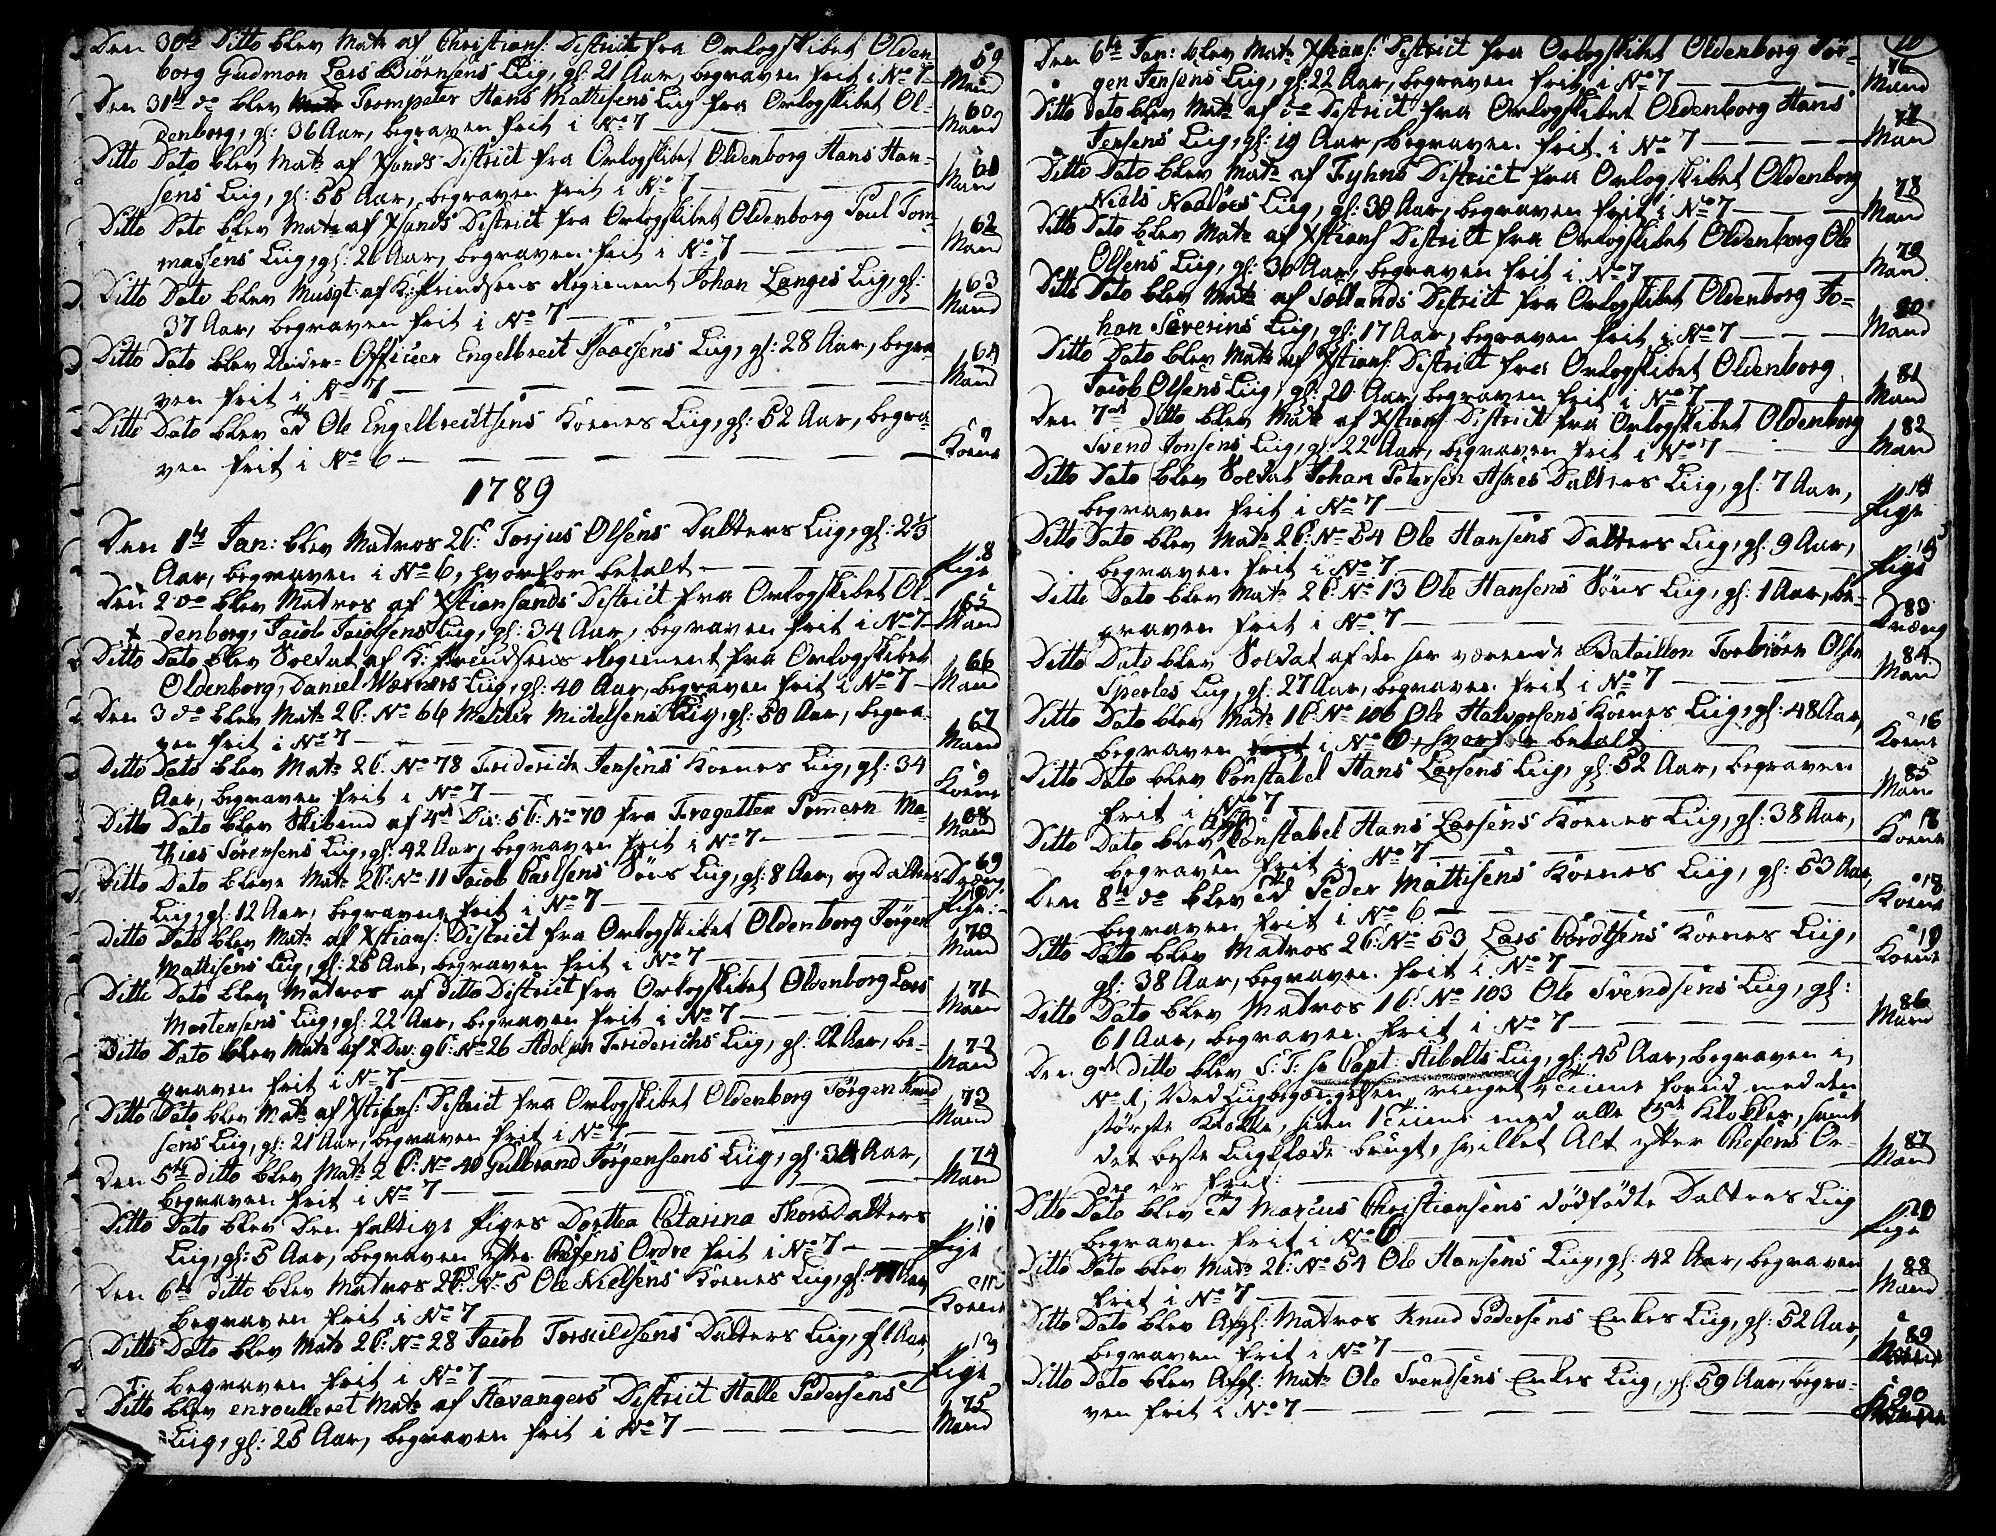 Den 30te Ditto blev Mat: af Christians: District fra Orlogskibet Olden-
borg Gudmon Lars Biörnsens Liig, gl: 21 Aar, begraven frit i No 7 — 59 Mand
Den 31te do blev Trompeter Hans Mathisens Liig fra Orlogskibet Ol-
denborg, gl: 36 Aar, begraven frit i No 7 — 60 Mand
Ditto Dato blev Mat: af Xsands District fra Orlogskibet Oldenborg Hans Han-
sens Liig, gl: 56 Aar, begraven frit i No 7 — 61 Mand
Ditto Dato blev Mat: af Xsands District fra Orlogskibet Oldenborg Poul Tom-
masens Liig, gl: 20 Aar, begraven frit i No 7 — 62 Mand
Ditto Dato blev Musqt: af K: Prindsens Regiment Johan Langes Liig, gl:
37 Aar, begraven frit i No 7 — 63 Mand
Ditto Dato blev Under-Officeer Engelbreit Isaacsens Liig, gl: 28 Aar, begra-
ven frit i No 7 — 64 Mand
Ditto Dato blev Ole Engelbreidtsens Koenes Liig, gl: 52 Aar, begra-
ven frit i No 6 — 7 Koene
1789
Den 1te Jan: blev Matros 2 C: Torjus Olsens Datters Liig, gl: 2 1/3
Aar, begraven i No 6, hvorfor betalt — 8 Pige
Den 2 do blev Matros af Xstiansands District fra Orlogskibet Ol-
denborg, Jacob Jacobsens Liig, gl: 34 Aar, begraven frit i No 7 — 65 Mand
Ditto Dato blev Soldat af K: Prindsens Regiment fra Orlogskibet
Oldenborg, Daniel Wærners Liig, gl: 40 Aar, begraven frit i No 7 — 66 Mand
Den 3 do blev Mat: 2 C: No 66 Michelsens Liig, gl: 50 Aar, begra-
ven frit i No 7 — 67 Mand
Ditto Dato blev Mat: 2 C: No 78 Friderich Jensens Koenes Liig, gl: 34
Aar, begraven frit i No 7 — 9 Koene
Ditto Dato blev Skibmd af 4de Div: 5 C: No 70 fra Fregatten Pomern Ma-
thias Sörensens Liig, gl: 42 Aar, begraven frit i No 7 — 68 Mand
Ditto Dato bleve Mat: 2 C: No 11 Jacob Carlsens Söns Liig, gl: 8 Aar, og Datters
Liig, gl: 12 Aar, begraven frit i No 7 — 69 Dreng Pige
Ditto Dato blev Mat: af Xstians: District fra Orlogskibet Oldenborg Jörgen
Mattisens Liig, gl: 26 Aar, begraven frit i No 7 — 70 Mand
Ditto Dato blev Matros af ditto District fra Orlogskibet Oldenborg Lars
Mortensens Liig, gl: 22 Aar, begraven frit i No 7 — 71 Mand
Ditto Dato blev Mat: af 2 Div: 9 C: No 26 Adolph Friderichs Liig, gl: 22 Aar, be-
graven frit i No 7 — 72 Mand
Ditto Dato blev Mat: af Xstians: District fra Orlogskibet Oldenborg Jörgen Knud-
sens Liig, gl: 21 Aar, begraven frit i No 7 — 73 Mand
Den 5te ditto blev Mat: 2 C: No 40 Gulbrand Jörgensens Liig, gl: 34 Aar,
begraven frit i No 7 — 74 Mand
Ditto Dato blev Den fattige Piges Dorttea Catarina Thorsdatters
Liig, gl: 5 Aar, begraven efter Chefens Ordre frit i No 7 — Pige
Den 6te ditto blev Matros 2 C: No 5 Ole Nielsens Koenes Liig, gl: Aar,
begraven frit i No 7 — Koene
Ditto Dato blev Mat: 2 C: No 28 Jacob Torkildsens Datters Liig, gl: 1 Aar,
begraven frit i No 7 — 13 Pige
Ditto blev enroulleret Mat: af Stavangers District Halle Pedersens
Liig, gl: 25 Aar, begraven frit i No 7 — 75 Mand
Den 6te Jan: blev Mat: Xstians: District fra Orlogskibet Oldenborg Jör-
gen Jensens Liig, gl: 22 Aar, begraven frit i No 7 — 76 Mand
Ditto dato blev Mat: af do District fra Orlogskibet Oldenborg Hans
Jensens Liig, gl: 19 Aar, begraven frit i No 7 — 77 Mand
Ditto Dato blev Mat: af Fyhns District fra Orlogskibet Oldenborg
Niels Liig, gl: 30 Aar, begraven frit i No 7 — 78 Mand
Ditto Dato blev Mat: af Xstians: District fra Orlogskibet Oldenborg Ole
Olsens Liig, gl: 36 Aar, begraven frit i No 7 — 79 Mand
Ditto Dato blev Mat: af Sællands District fra Orlogskibet Oldenborg Jo-
han Severins Liig, gl: 17 Aar, begraven frit i No 7 — 80 Mand
Ditto Dato blev Mat: af Xstians: District fra Orlogskibet Oldenborg
Jacob Olsens Liig, gl: 20 Aar, begraven frit i No 7 — 81 Mand
Den 7de ditto blev Mat: af Xstians: District fra Orlogskibet Oldenborg
Svend Jonsens Liig, gl: 22 Aar, begraven frit i No 7 — 82 Mand
Ditto Dato blev Soldat Johan Petersen Datters Liig, gl: 7 Aar,
begraven frit i No 7 — 14 Pige
Ditto Dato blev Mat: 2 C: No 54 Ole Hansens Datters Liig, gl: 9 Aar,
begraven frit i No 7 — 15 Pige
Ditto Dato blev Mat: 2 C: No 13 Ole Hansens Söns Liig, gl: 1 Aar, be-
graven frit i No 7 — 83 Dreng
Ditto Dato blev Soldat af den her værende Bataillon Torbiörn Olsen
Sperles Liig, gl: 27 Aar, begraven frit i No 7 — 84 Mand
Ditto Dato blev Mat: 1 C: No 106 Ole Halvorsens Koenes Liig, gl: 48 Aar,
begraven frit i No 6, hvorfor betalt — 16 Koene
Ditto Dato blev Constabel Hans Larsens Liig, gl: 52 Aar, begraven
frit i No 7 — 85 Mand
Ditto Dato blev Constabel Hans Larsens Koenes Liig, gl: 38 Aar,
begraven frit i No 7 — Koene
Den 8de do blev Peder Mattisens Koenes Liig, gl: 53 Aar,
begraven frit i No 6 — 18 Koene
Ditto Dato blev Matros 2 C: No 53 Lars Koenes Liig,
gl: 38 Aar, begraven frit i No 7 — 19 Koene
Ditto Dato blev Matros 1 C: No 103 Ole Svendsens Liig, gl:
61 Aar, begraven frit i No 7 — 86 Mand
Den 9de ditto blev S: T: Hr Capt: Stibolts Liig, gl: 45 Aar, begraven i
No 1, Ved Liigbegængelsen ringet Tiime forud med den
störste Klokke, siden 1 Tiime med alle Klokker, samt
det beste Liigklæde brugt, hvilket Alt efter Chefens Or-
der er frit: — 87 Mand
Ditto Dato blev Marcus Christiansens dödfödte Datters Liig
begraven frit i No 6 — 20 Pige
Ditto Dato blev Mat: 2 C: No 54 Ole Hansens Liig, gl: 42 Aar, begraven
frit i No 7 — 88 Mand
Ditto Dato blev Afgl: Matros Knud Pedersens Enkes Liig, gl: 52 Aar,
begraven frit i No 7 — 89
Ditto Dato blev Afgl: Mat: Ole Svendsens Enkes Liig, gl: 59 Aar, begra-
ven frit i No 7 — 90